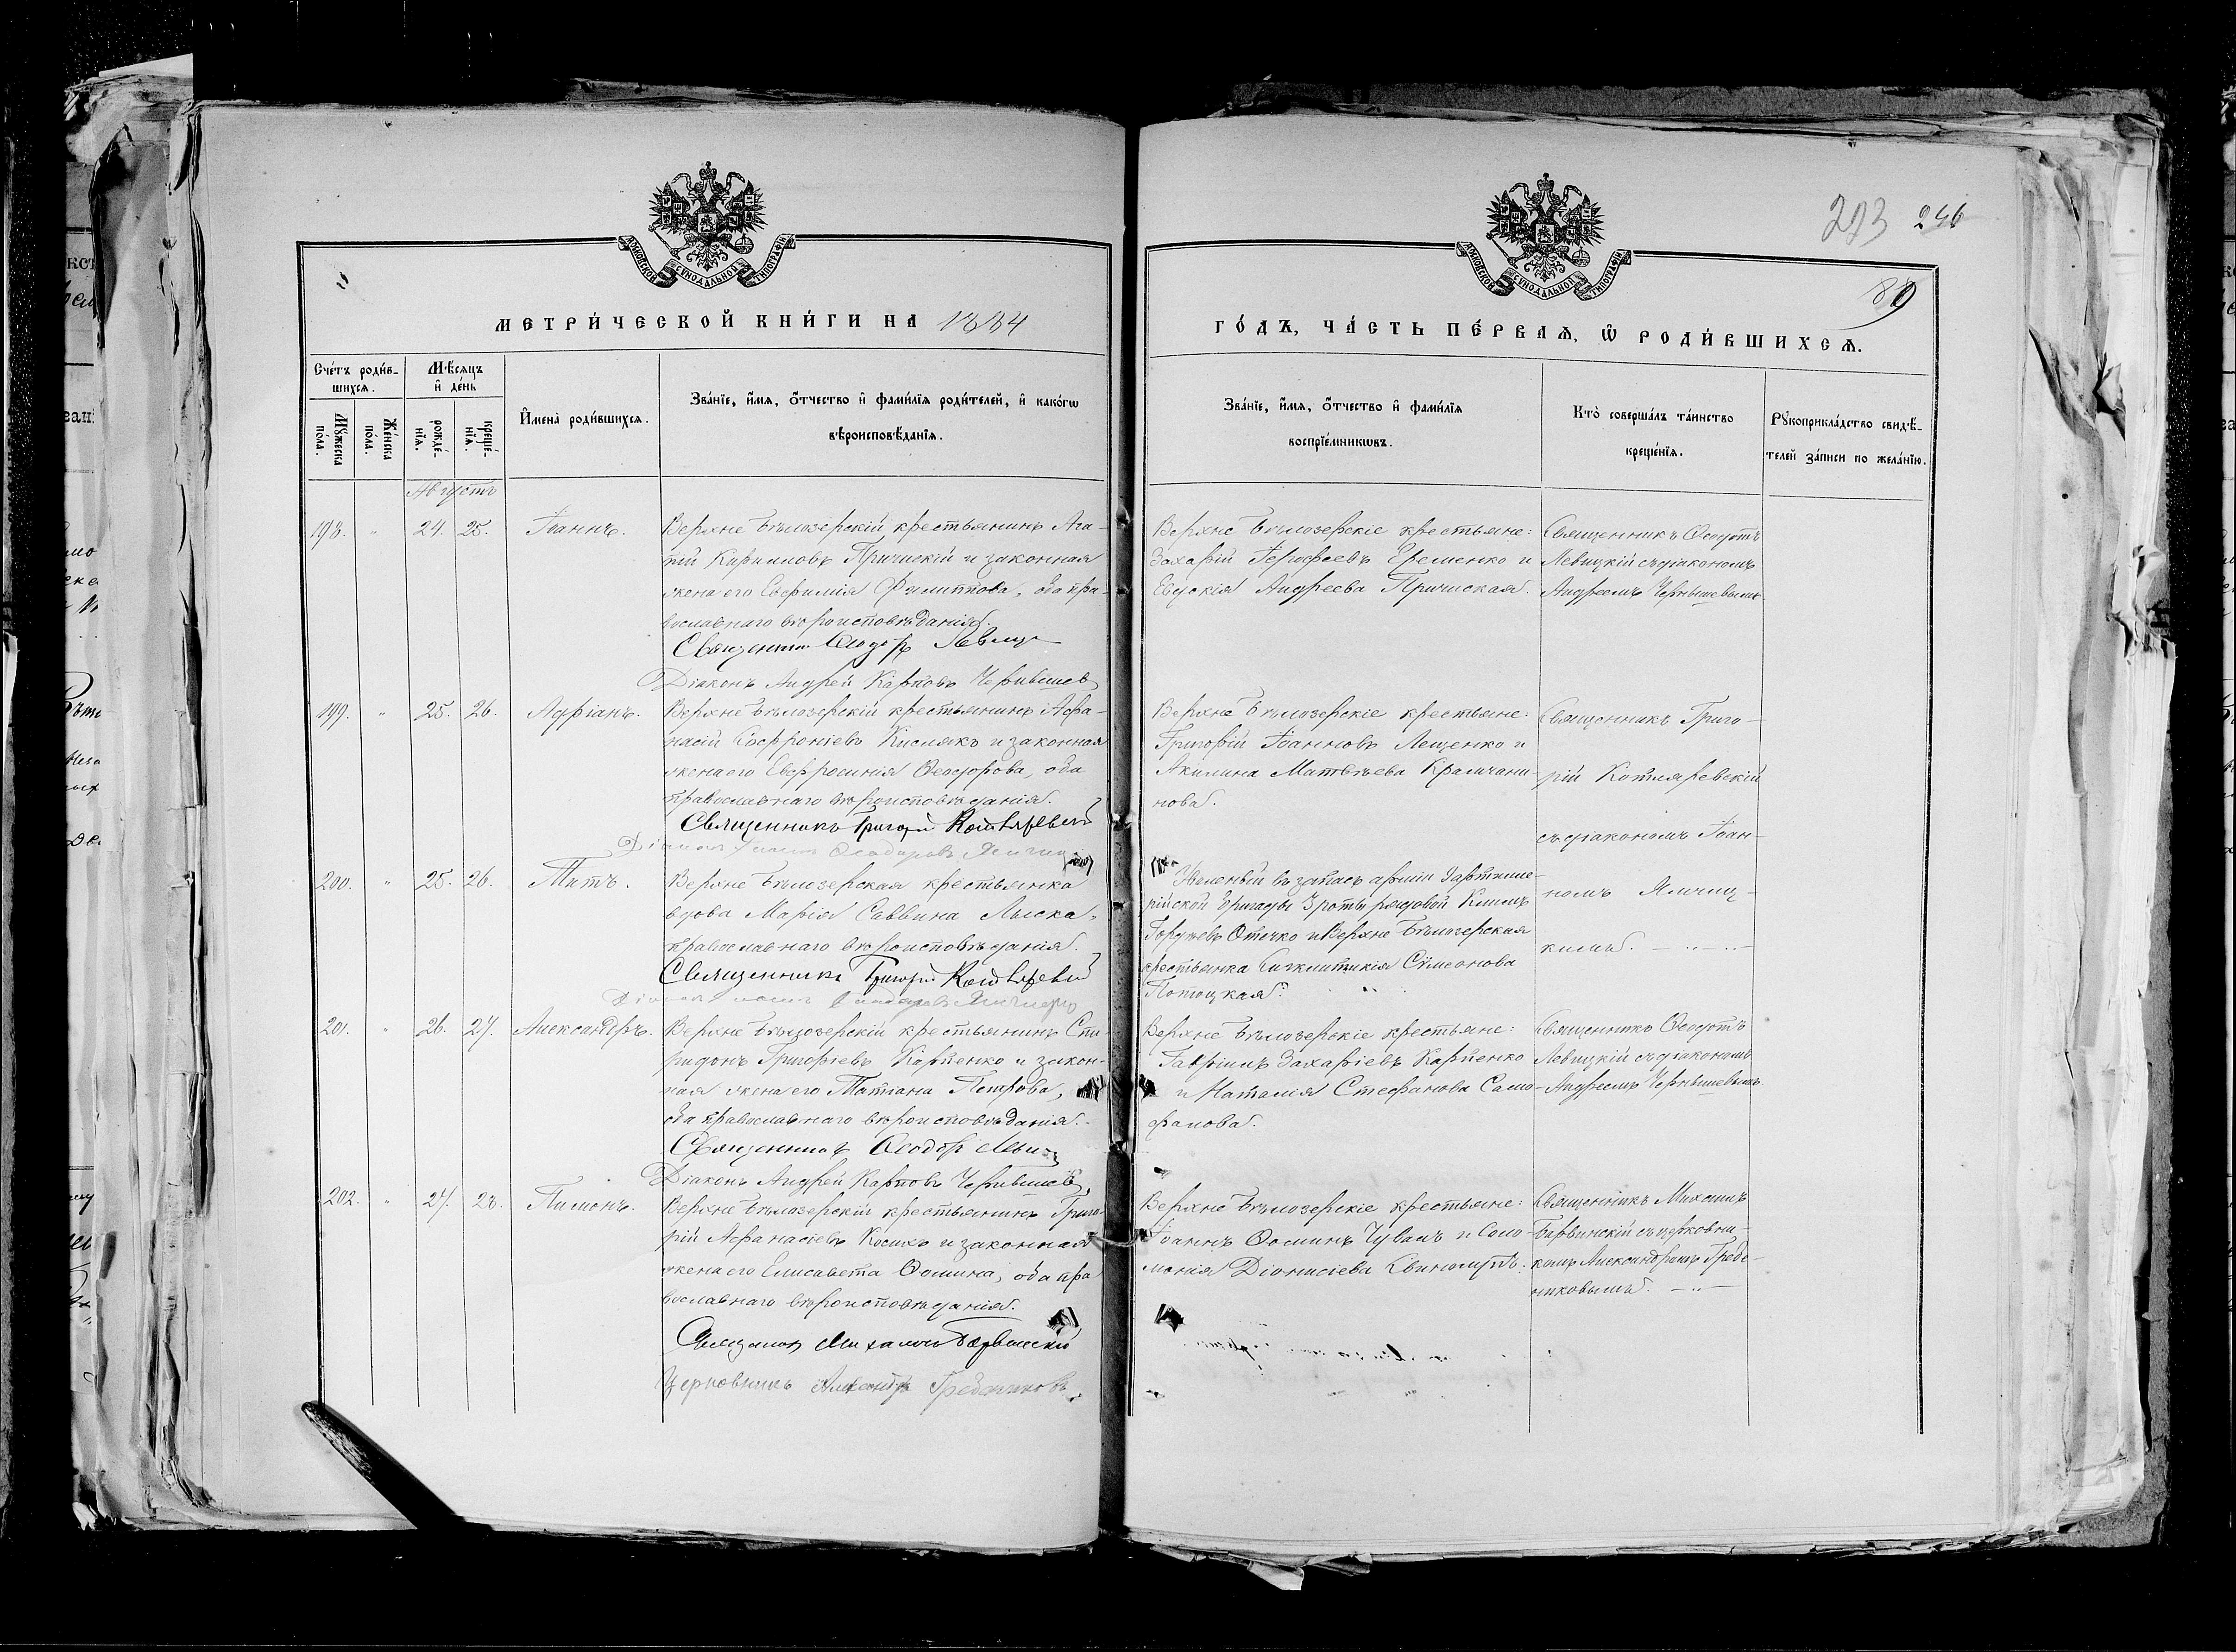 246
89
МОСКОВСКОЙ СѴНОДАЛЬНОЙ ТИПОГРАФІИ
МОСКОВСКОЙ СѴНОДАЛЬНОЙ ТИПОГРАФІИ
МЕТРИ́ЧЕСКОЙ КНИ́ГИ НА 1884
ГО́ДЪ, ЧА́СТЬ ПЕ́РВАѦ, Ѿ РОДИ́ВШИХСѦ.
Счéтъ роди́в-шихсѧ.
Мѣ́сѧцъ и҆ де́нь
Мꙋ́жеска по́ла.
Же́нска по́ла.
рожде́-нїѧ.
креще́-нїѧ.
И҆мена̀ роди́вшихсѧ.
Зва́нїе, и҆́мѧ, ѻ҆́тчество и҆ фами́лїѧ роди́телей, и҆ како́гѡ
вѣроисповѣ́данїѧ.
Зва́нїе, и҆́мѧ, ѻ҆́тчество и҆ фами́лїѧ
воспрїе́мникѡвъ.
Кто̀ соверша́лъ та́инство
креще́нїѧ.
Рꙋкоприкла́дство свидѣ́-
телей за́писи по жела́нїю.
Августъ
198. " 24. 25. Іоаннъ.
Верхне Бѣлозерскій крестьянинъ Ага-
пій Кириловъ Причискій и законная
жена его Евфимія Филиппова, оба пра-
вославнаго вѣроисповѣданія.
Священникъ Ѳеодотъ
Діаконъ Андрей Карповъ Чернышев
Верхне Бѣлозерскіе крестьяне:
Захарій Еременко и
Евдокія Андреева Причиская.
Священникъ Ѳеодотъ
Левицкій съ діакономъ
Андреемъ Чернышевымъ
199. " 25. 26. Адріанъ.
Верхне Бѣлозерскій крестьянинъ Афа-
насій Софроніевъ Кислякъ и законная
жена его Евфросинія Ѳеодорова, оба
православнаго вѣроисповѣданія.
Священникъ Григорій Котляревскій
Діаконъ Іоаннъ Ѳеодоровъ
Верхне Бѣлозерскіе крестьяне:
Григорій Іоанновъ Лещенко и
Акилина Матвѣева Крамчани-
нова.
Священникъ Григо-
рій Котляревскій
съ діакономъ Іоан-
номъ Яличиц-
кимъ. — " —
200. " 25. 26. Титъ.
Верхне Бѣлозерская крестьянка
вдова Марія Саввина Лыска,
православнаго вѣроисповѣданія.
Священникъ Григорій Котляревскій
Уволеный въ запасъ арміи артиле-
рійской бригады 3 роты рядовой Климъ
Гордѣевъ Отечко и Верхне Бѣлозерская
крестьянка Синклитикія Сѵмеонова
Потоцкая.
201. " 26. 27. Александръ.
Верхне Бѣлозерскій крестьянинъ Спи-
ридонъ Григоріевъ Карпенко и закон-
ная жена его Татіана Петрова,
оба православнаго вѣроисповѣданія.
Священникъ Ѳеодотъ
Діаконъ Андрей Карповъ Чернышев
Верхне Бѣлозерскіе крестьяне:
Гавріилъ Захаріевъ Карпенко
и Наталія Стефанова Само-
фалова.
Священникъ Ѳеодотъ
Левицкій съ діакономъ
Андреемъ Чернышевымъ
202. " 27. 28. Пименъ.
Верхне Бѣлозерскій крестьянинъ Григо-
рій Афанасіевъ Косикъ и законная
жена его Елисавета Ѳомина, оба пра-
вославнаго вѣроисповѣданія.
Священникъ Михаилъ Барвинскій
Церковникъ Александръ Гребениковъ
Верхне Бѣлозерскіе крестьяне:
Іоаннъ Ѳоминъ Чувашъ и Соло-
монія Діонисіева
Священникъ Михаилъ
Барвинскій съ церковни-
комъ Александромъ Гребе-
никовымъ. — " —